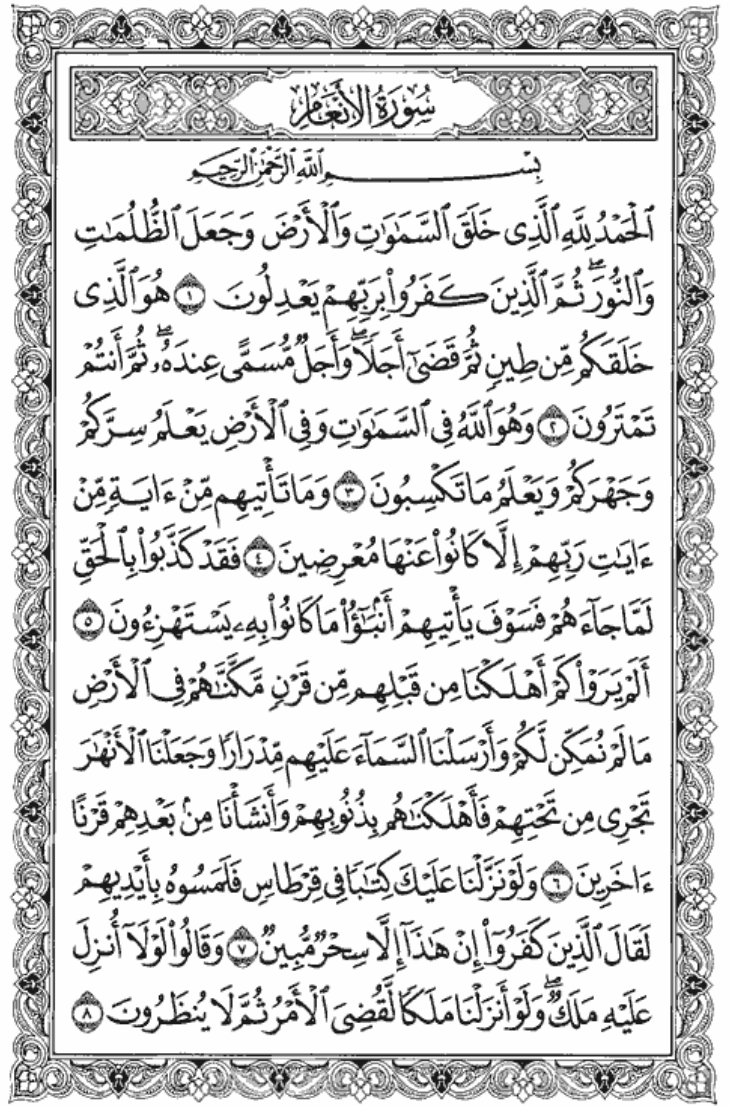 سُورَةُ الأَنْعَامِ
بِسْمِ ٱللَّهِ ٱلرَّحْمَٰنِ ٱلرَّحِيمِ
ٱلْحَمْدُ لِلَّهِ ٱلَّذِى خَلَقَ ٱلسَّمَٰوَٰتِ وَٱلْأَرْضَ وَجَعَلَ ٱلظُّلُمَٰتِ
وَٱلنُّورَ ۖ ثُمَّ ٱلَّذِينَ كَفَرُوا۟ بِرَبِّهِمْ يَعْدِلُونَ ١ هُوَ ٱلَّذِى
خَلَقَكُم مِّن طِينٍ ثُمَّ قَضَىٰٓ أَجَلًا ۖ وَأَجَلٌ مُّسَمًّى عِندَهُۥ ۖ ثُمَّ أَنتُمْ
تَمْتَرُونَ ٢ وَهُوَ ٱللَّهُ فِى ٱلسَّمَٰوَٰتِ وَفِى ٱلْأَرْضِ يَعْلَمُ سِرَّكُمْ
وَجَهْرَكُمْ وَيَعْلَمُ مَا تَكْسِبُونَ ٣ وَمَا تَأْتِيهِم مِّنْ ءَايَةٍ مِّنْ
ءَايَٰتِ رَبِّهِمْ إِلَّا كَانُوا۟ عَنْهَا مُعْرِضِينَ ٤ فَقَدْ كَذَّبُوا۟ بِٱلْحَقِّ
لَمَّا جَآءَهُمْ فَسَوْفَ يَأْتِيهِمْ أَنۢبَٰٓؤُا۟ مَا كَانُوا۟ بِهِۦ يَسْتَهْزِءُونَ ٥
أَلَمْ يَرَوْا۟ كَمْ أَهْلَكْنَا مِن قَبْلِهِم مِّن قَرْنٍ مَّكَّنَّٰهُمْ فِى ٱلْأَرْضِ
مَا لَمْ نُمَكِّن لَّكُمْ وَأَرْسَلْنَا ٱلسَّمَآءَ عَلَيْهِم مِّدْرَارًا وَجَعَلْنَا ٱلْأَنْهَٰرَ
تَجْرِى مِن تَحْتِهِمْ فَأَهْلَكْنَٰهُم بِذُنُوبِهِمْ وَأَنشَأْنَا مِنۢ بَعْدِهِمْ قَرْنًا
ءَاخَرِينَ ٦ وَلَوْ نَزَّلْنَا عَلَيْكَ كِتَٰبًا فِى قِرْطَاسٍ فَلَمَسُوهُ بِأَيْدِيهِمْ
لَقَالَ ٱلَّذِينَ كَفَرُوٓا۟ إِنْ هَٰذَآ إِلَّا سِحْرٌ مُّبِينٌ ٧ وَقَالُوا۟ لَوْلَآ أُنزِلَ
عَلَيْهِ مَلَكٌ ۖ وَلَوْ أَنزَلْنَا مَلَكًا لَّقُضِىَ ٱلْأَمْرُ ثُمَّ لَا يُنظَرُونَ ٨